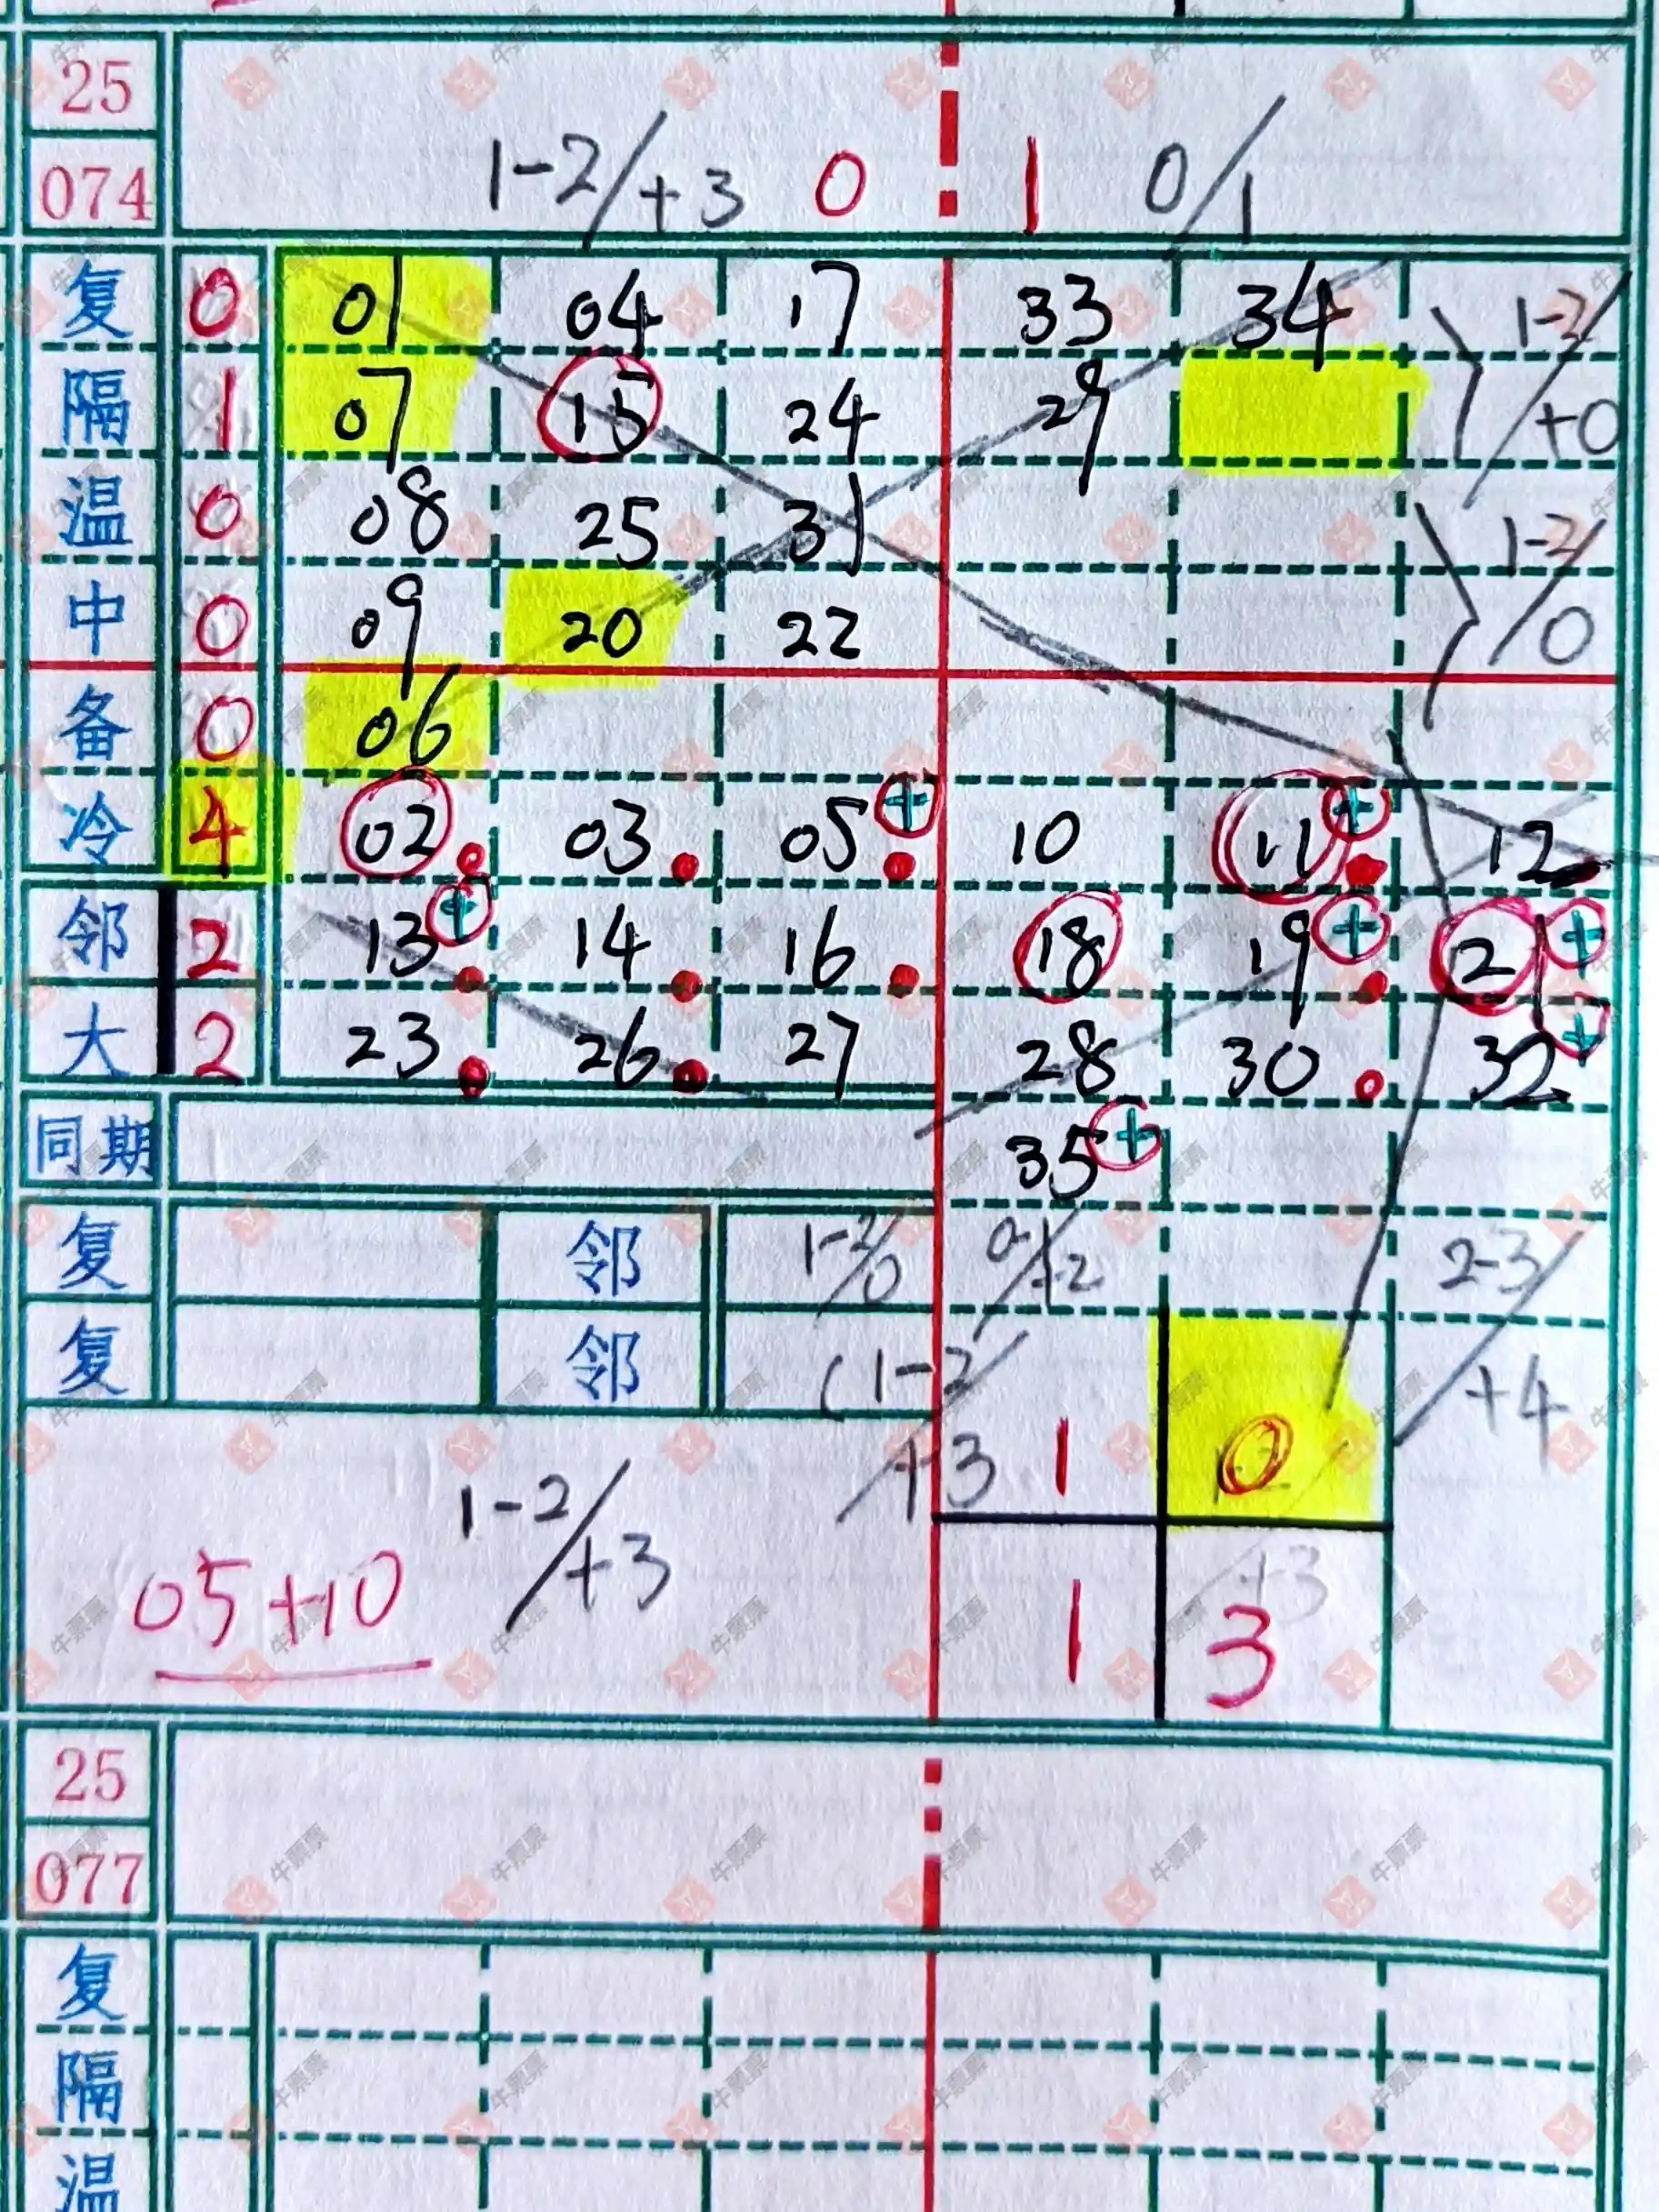 25
074
1-2/+3 0 1 0/1
复 0 01 04 17 33 34 1-2/+0
隔 1 07 15 24 29
温 0 08 25 31 1-2/0
中 0 09 20 22
备 0 06
冷 4 02 03 05 + 10 11 + 12
邻 2 13 + 14 16 18 19 + 21 +
大 2 23 26 27 28 30 32 +
同期 35 +
复 邻 1-2/0 2-3/+4
复 邻 (1-2/+3 1 0
05+10 1-2/+3 +3
1 3
25
077
复
隔
温
牛票票